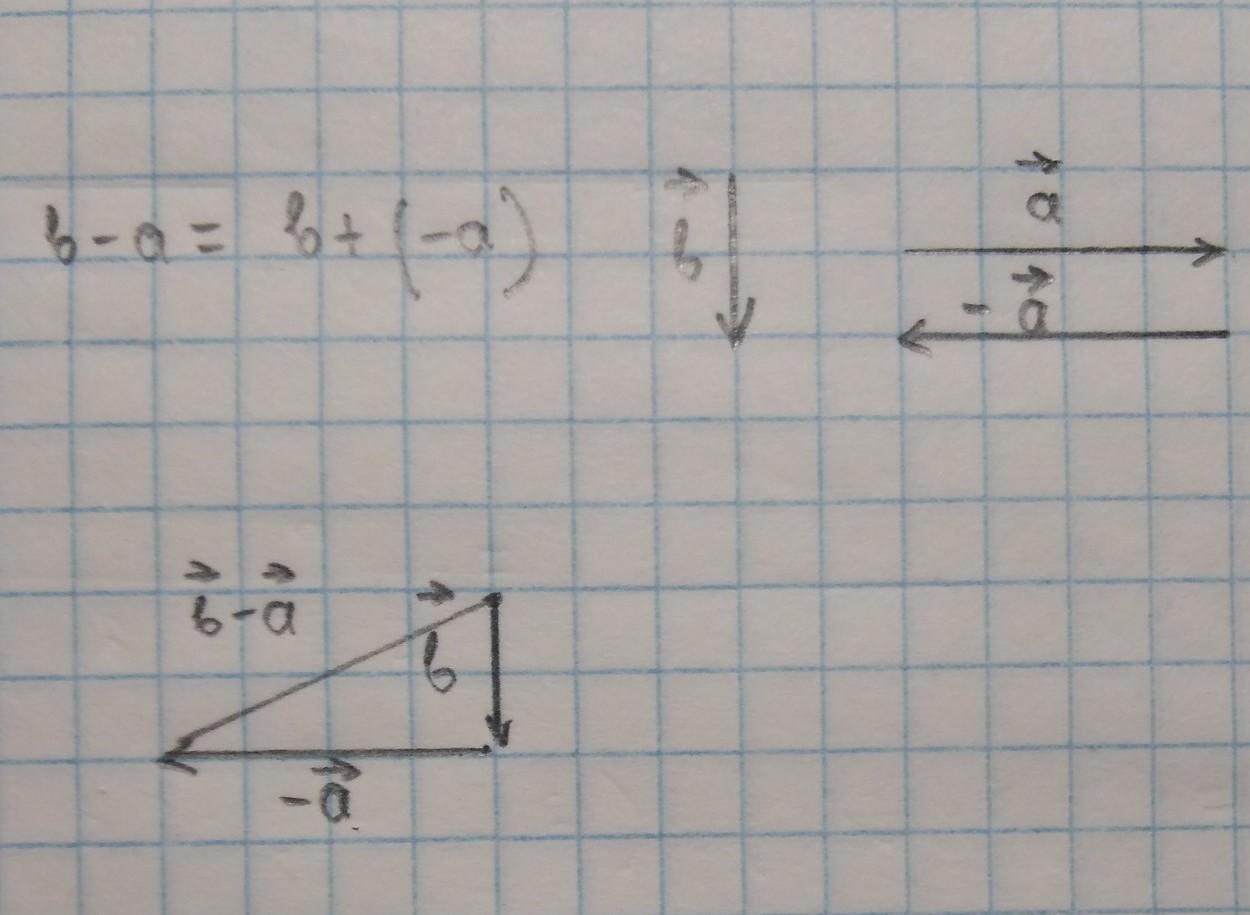 b - a = b + (-a)
b⃗
a⃗
- a⃗
b⃗ - a⃗
b⃗
- a⃗